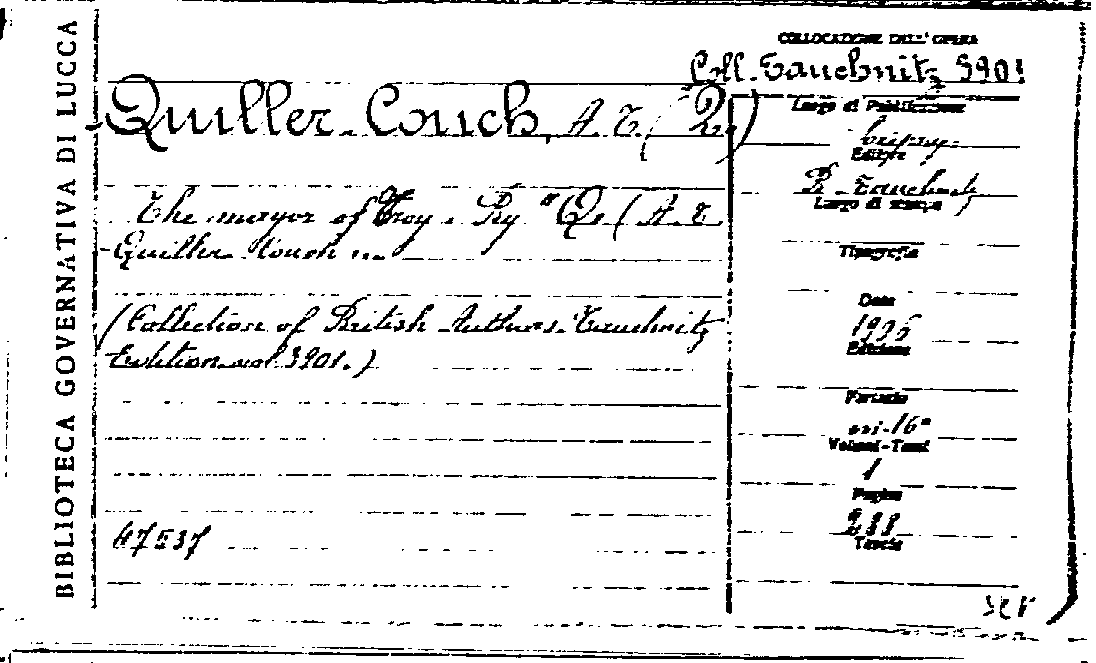 BIBLIOTECA GOVERNATIVA DI LUCCA
COLLOCAZIONE DELL'OPERA
Coll. Tauchnitz 3901
Quiller-Couch, A. T. (Q.)
The mayor of Troy. By "Q" (A. T.
Quiller-Couch ...
(Collection of British Authors. Tauchnitz
Edition vol 3901.)
47537
Luogo di Pubblicazione
Leipzig
Editore
B. Tauchnitz
Luogo di stampa
Tipografia
Data
Edizione
Formato
16°
Volumi-Tomi
1
Pagine
288
Tavole